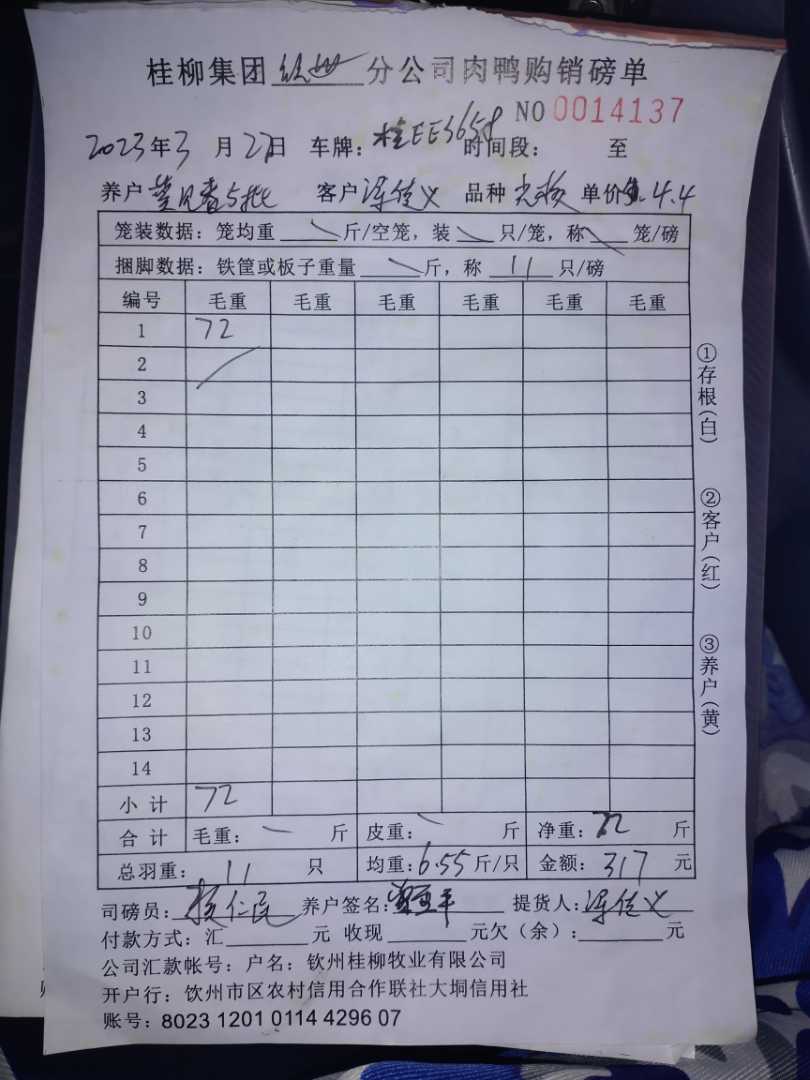 桂柳集团 钦州 分公司肉鸭购销磅单
NO 0014137
2023年3月27日 车牌：桂EE3658 时间段： 至
养户 5批 客户 义 品种 单价 4.4
笼装数据：笼均重 斤/空笼，装 只/笼，称 笼/磅
捆脚数据：铁筐或板子重量 斤，称 11 只/磅
编号 毛重 毛重 毛重 毛重 毛重 毛重
1 72
2
3
4
5
6
7
8
9
10
11
12
13
14
小计 72
合计 毛重： 斤 皮重： 斤 净重：72 斤
总羽重：11 只 均重：6.55斤/只 金额：317 元
司磅员： 仁民 养户签名： 提货人： 义
付款方式：汇 元 收现 元欠（余）： 元
公司汇款帐号：户名：钦州桂柳牧业有限公司
开户行：钦州市区农村信用合作联社大垌信用社
账号：8023 1201 0114 4296 07
①存根（白）
②客户（红）
③养户（黄）